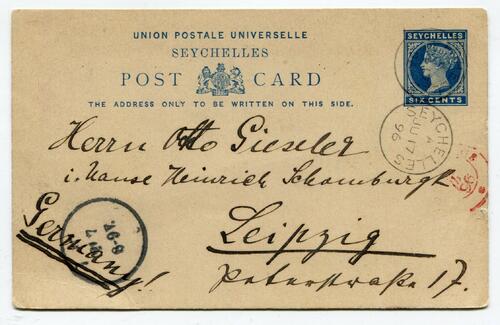 UNION POSTALE UNIVERSELLE
SEYCHELLES
POST CARD
THE ADDRESS ONLY TO BE WRITTEN ON THIS SIDE.
SEYCHELLES
SIX CENTS
SEYCHELLES
A
JU 17
96
Herrn Otto Gieseler
i. Hause Heinrich Schomburgk
Leipzig
Peterstraße 17.
Germany!